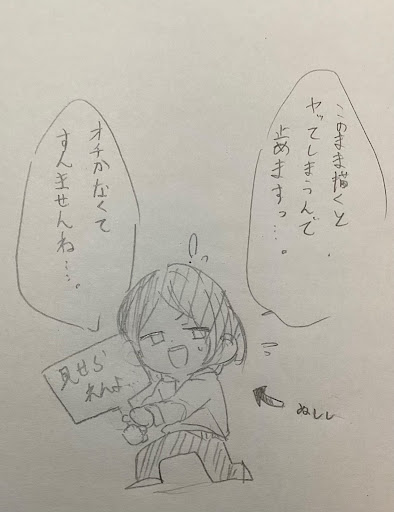 このまま描くと
ヤッてしまうんで
止めますっ…。
オチがなくて
すんませんね…。
!!
見せら
れんよ
ぬしし